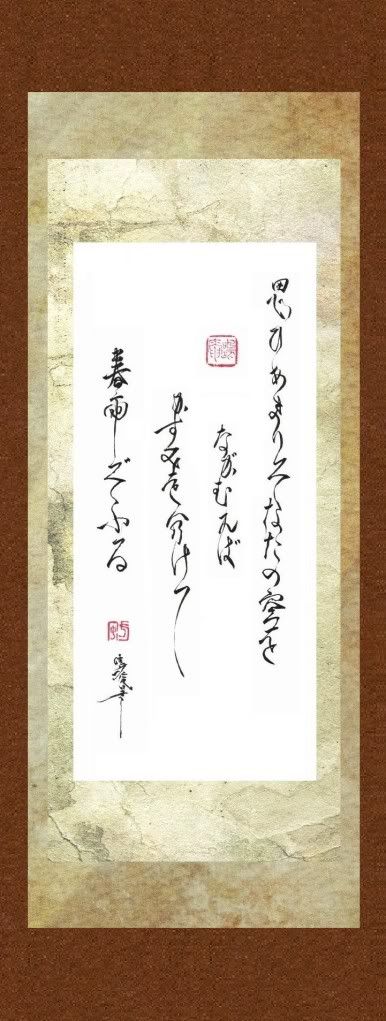 思ひあまりそなたの空を
ながむれば
かすみを分けて
春雨ぞふる